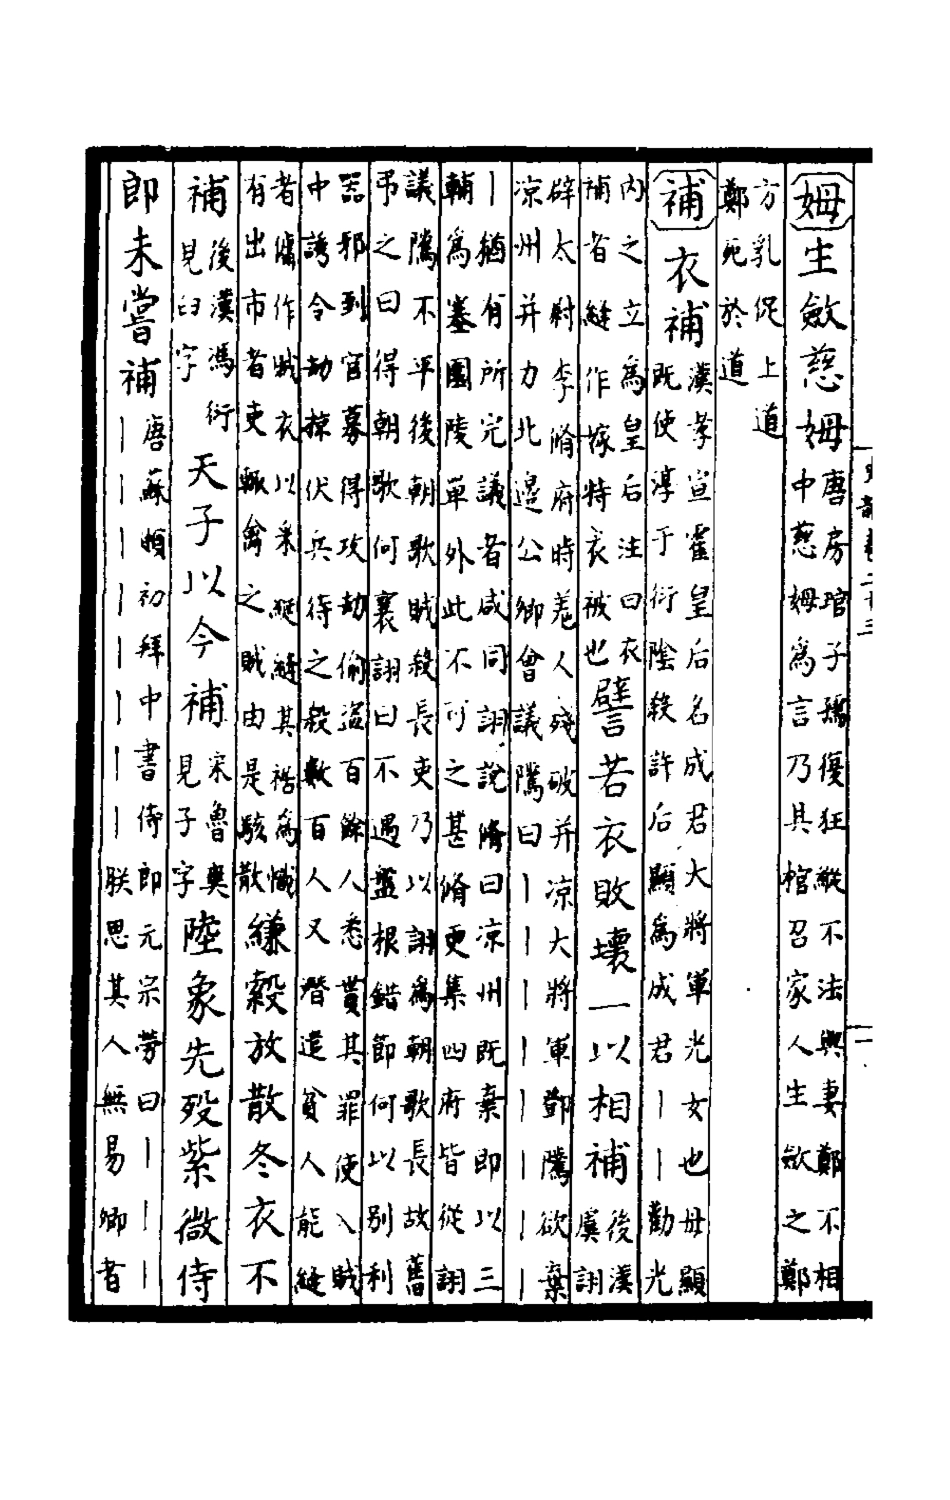 姆 生斂慈姆
唐房琯子孺復狂縱不法與妻鄭不相
中慈姆為言乃具棺召家人生斂之鄭
方乳促上道
鄭死於道
補 衣補
漢孝宣霍皇后名成君大將軍光女也母顯
既使淳于衍陰殺許后顯為成君丨丨勸光
内之立為皇后注曰衣
補者縫作嫁特衣被也
譬若衣敗壞一以相補
後漢
虞詡
辟太尉李脩府時羌人殘破并凉大將軍鄧騭欲棄
凉州并力北邊公卿會議騭曰丨丨丨丨丨丨丨丨
丨猶有所完議者咸同詡說脩曰凉州既棄即以三
輔為塞園陵單外此不可之甚脩更集四府皆從詡
議騭不平後朝歌賊殺長吏乃以詡為朝歌長故舊
弔之曰得朝歌何衰詡曰不遇盤根錯節何以別利
器邪到官募得攻劫偷盜百餘人悉貰其罪使入賊
中誘令劫掠伏兵待之殺數百人又潛遣貧人能縫
者傭作賊衣以采綖縫其裾為幟
有出市者吏輒禽之賊由是駭散
縑縠放散冬衣不
補
後漢馮衍
見臼字
天子以今補
宋魯爽
見子字
陸象先歿紫微侍
郎未嘗補
唐蘇頲初拜中書侍郎元宗勞曰丨丨丨
丨丨丨丨丨丨丨丨朕思其人無易卿者